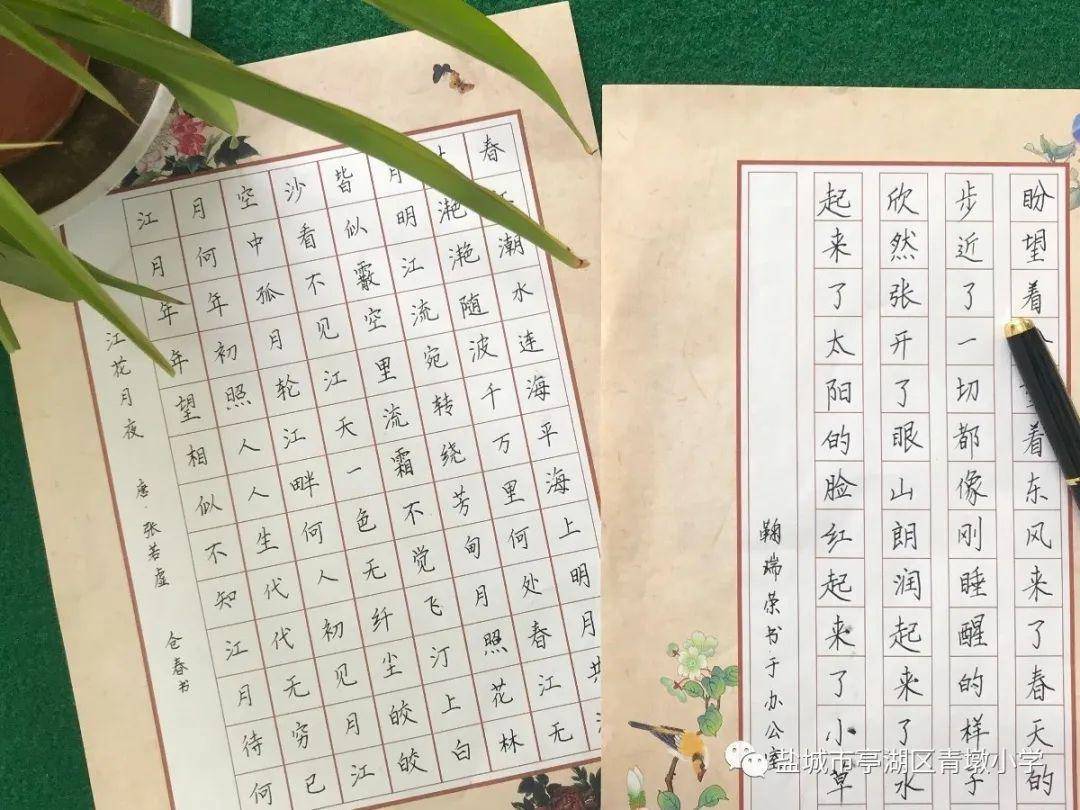 春江潮水连海平海上明月共
上滟滟随波千万里何处春江无
月明江流宛转绕芳甸月照花林
皆似霰空里流霜不觉飞汀上白
沙看不见江天一色无纤尘皎皎
空中孤月轮江畔何人初见月江
月何年初照人人生代代无穷已
江月年年望相似不知江月待何
江花月夜 唐·张若虚 仓春书
盼望着 着东风来了春天的
步近了一切都像刚睡醒的样子
欣然张开了眼山朗润起来了水
起来了太阳的脸红起来了小草
鞠瑞荣书于办公室
盐城市亭湖区青墩小学